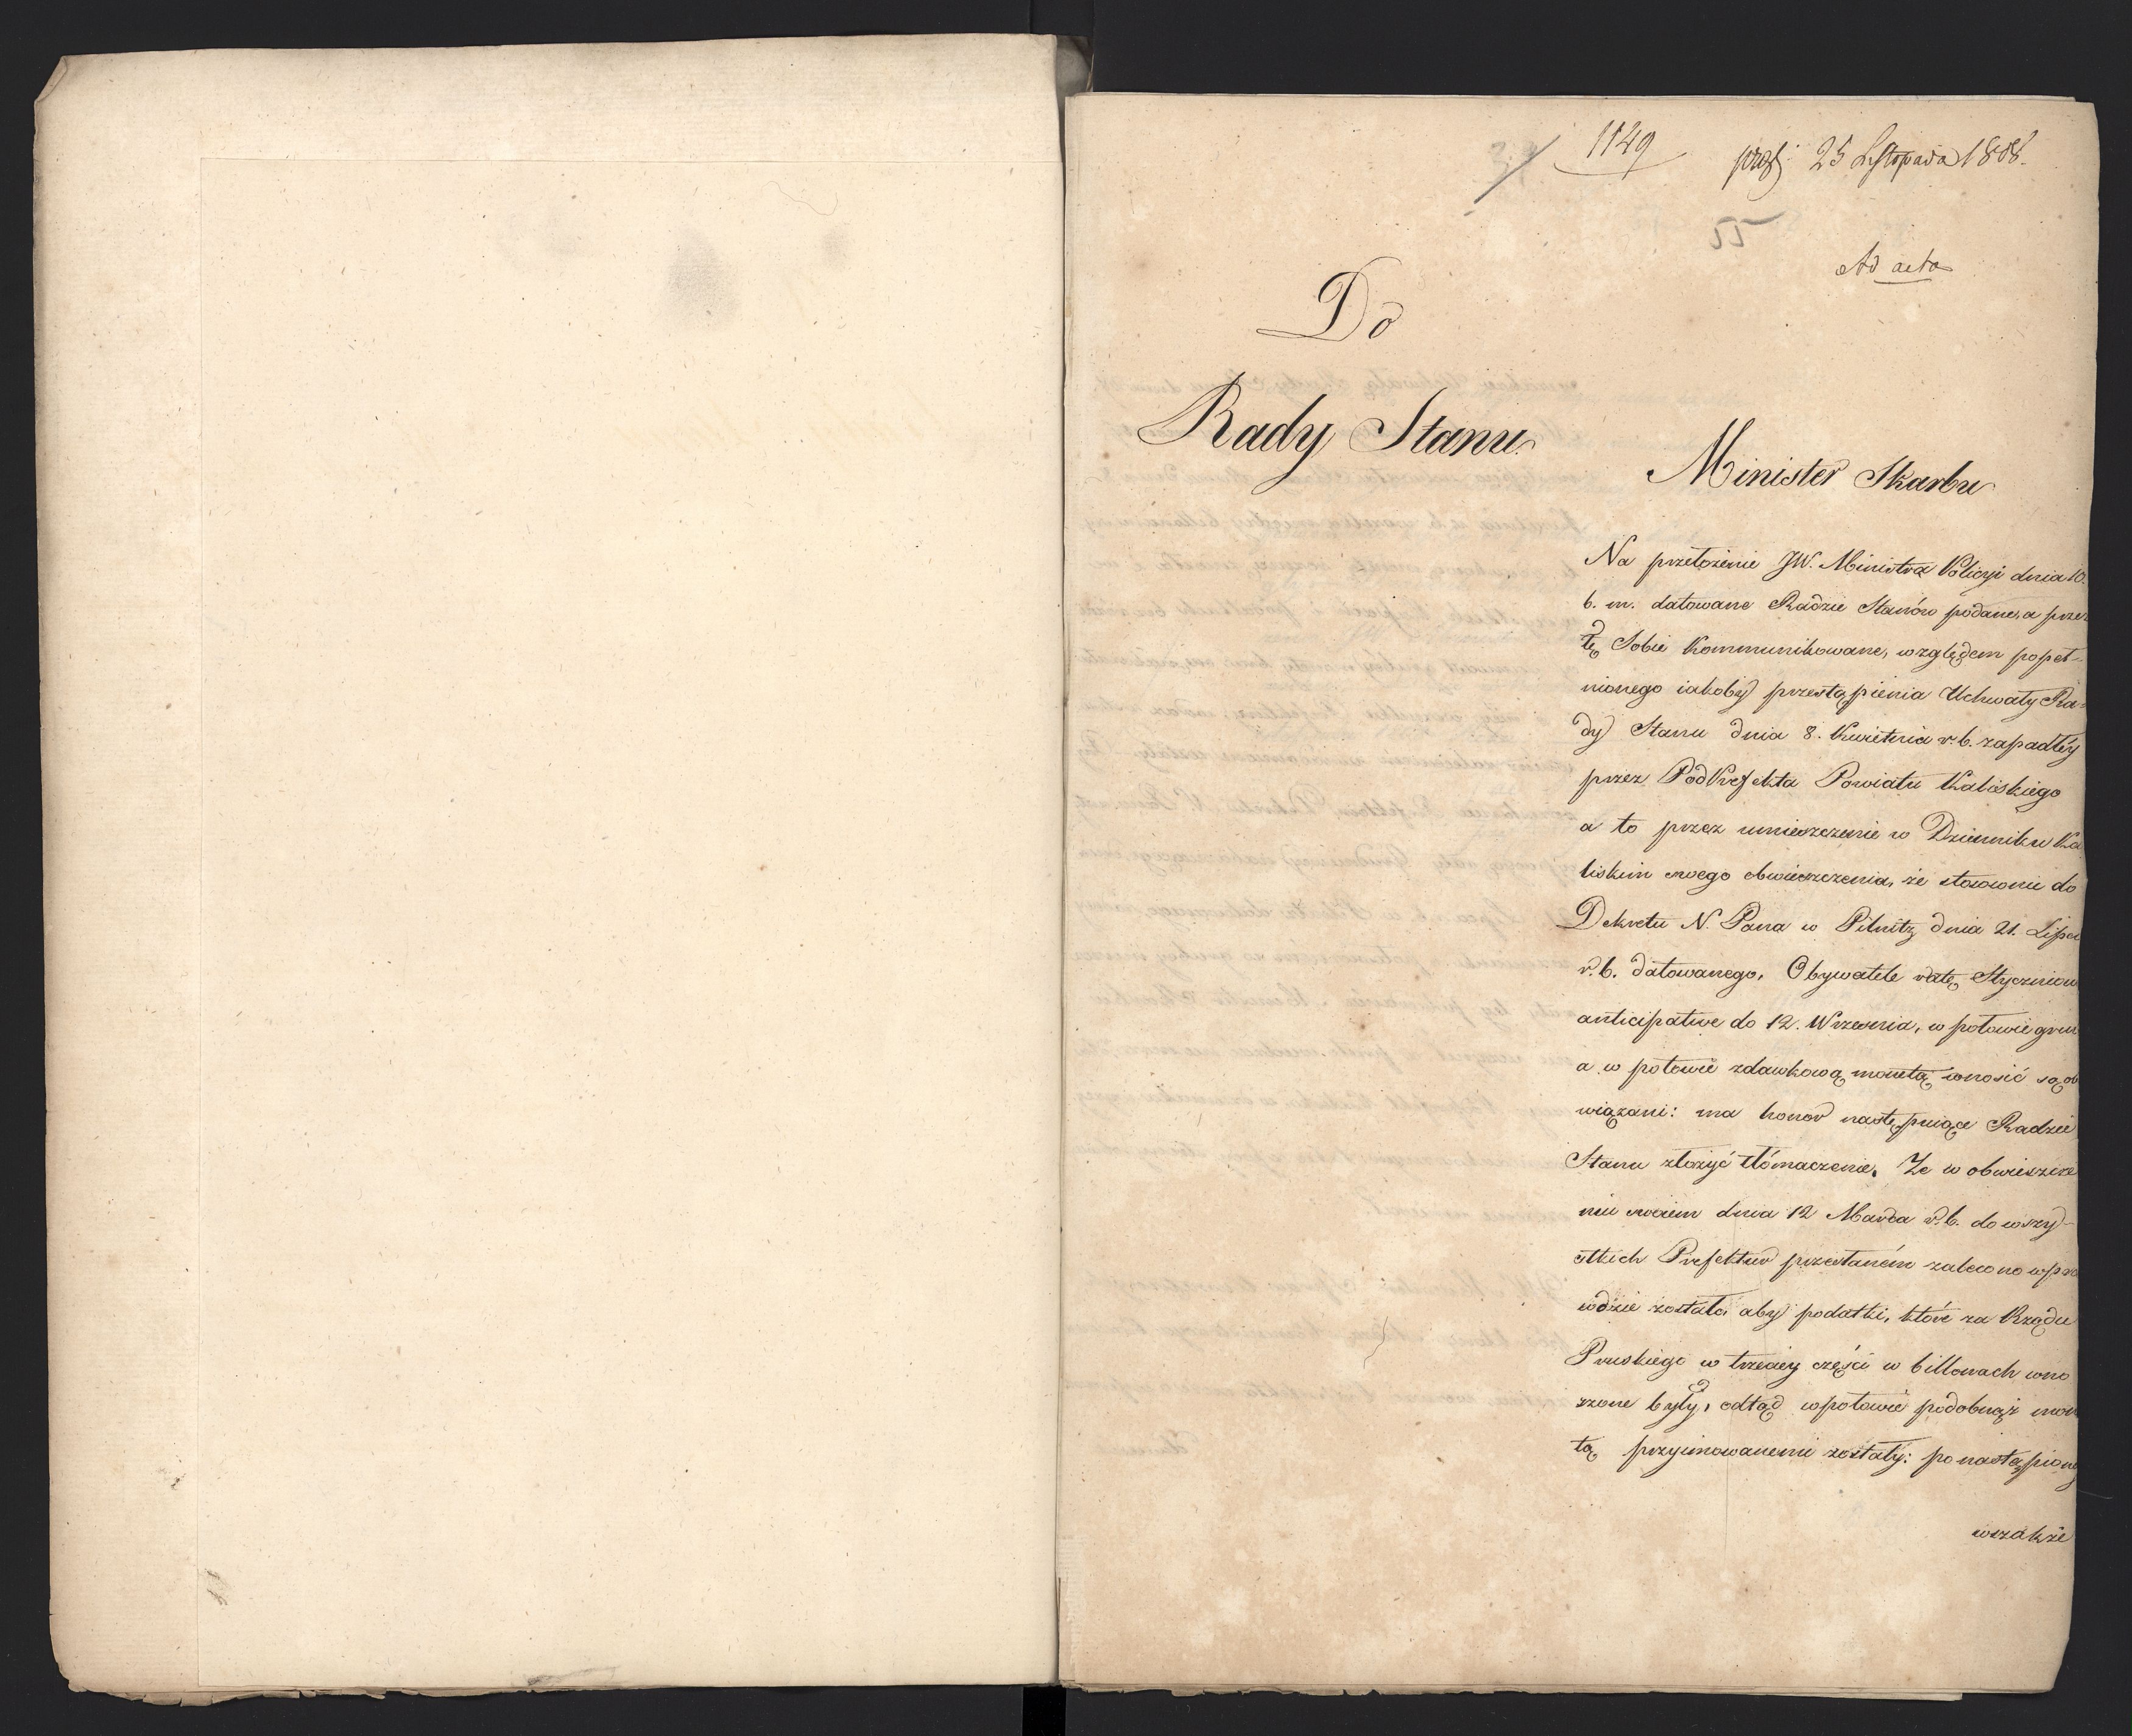 1149
25 Listopada 1808.
55
Ad acta
Do
Rady Stanu.
Minister Skarbu
Na przełożenie JW. Ministra Policyi dnia 10.
b. m. datowane Radzie Stanów podane, a przez
tę Sobie kommunikowane, względem popeł-
nionego iakoby przestąpienia Uchwały Ra-
dy Stanu dnia 8. Kwietnia r. b. zapadłéy
przez PodPrefekta Powiatu Kaliskiego
a to przez umieszczenie w Dzienniku Ka
liskim swego obwieszczenia, że stosownie do
Dekretu N. Pana w Pilnitz dnia 21. Lipca
r. b. datowanego, Obywatele ratę Styczniow
anticipative do 12. Września, w połowie gru
a w połowie zdawkową monetą wnosić są ob
wiązani: ma honor następuiące Radzie
Stanu złożyć tłómaczenie. Że w obwieszcze
niu swoiem dnia 12 Marca r. b. do wszy-
stkich Prefektur przesłaném zalecono wpra
wdzie zostało aby podatki, które za Rządu
Pruskiego w trzeciey części w billonach wno
szone były, odtąd w połowie podobnąż mon
tą przyimowanemi zostały: po nastąpioney
wszakże